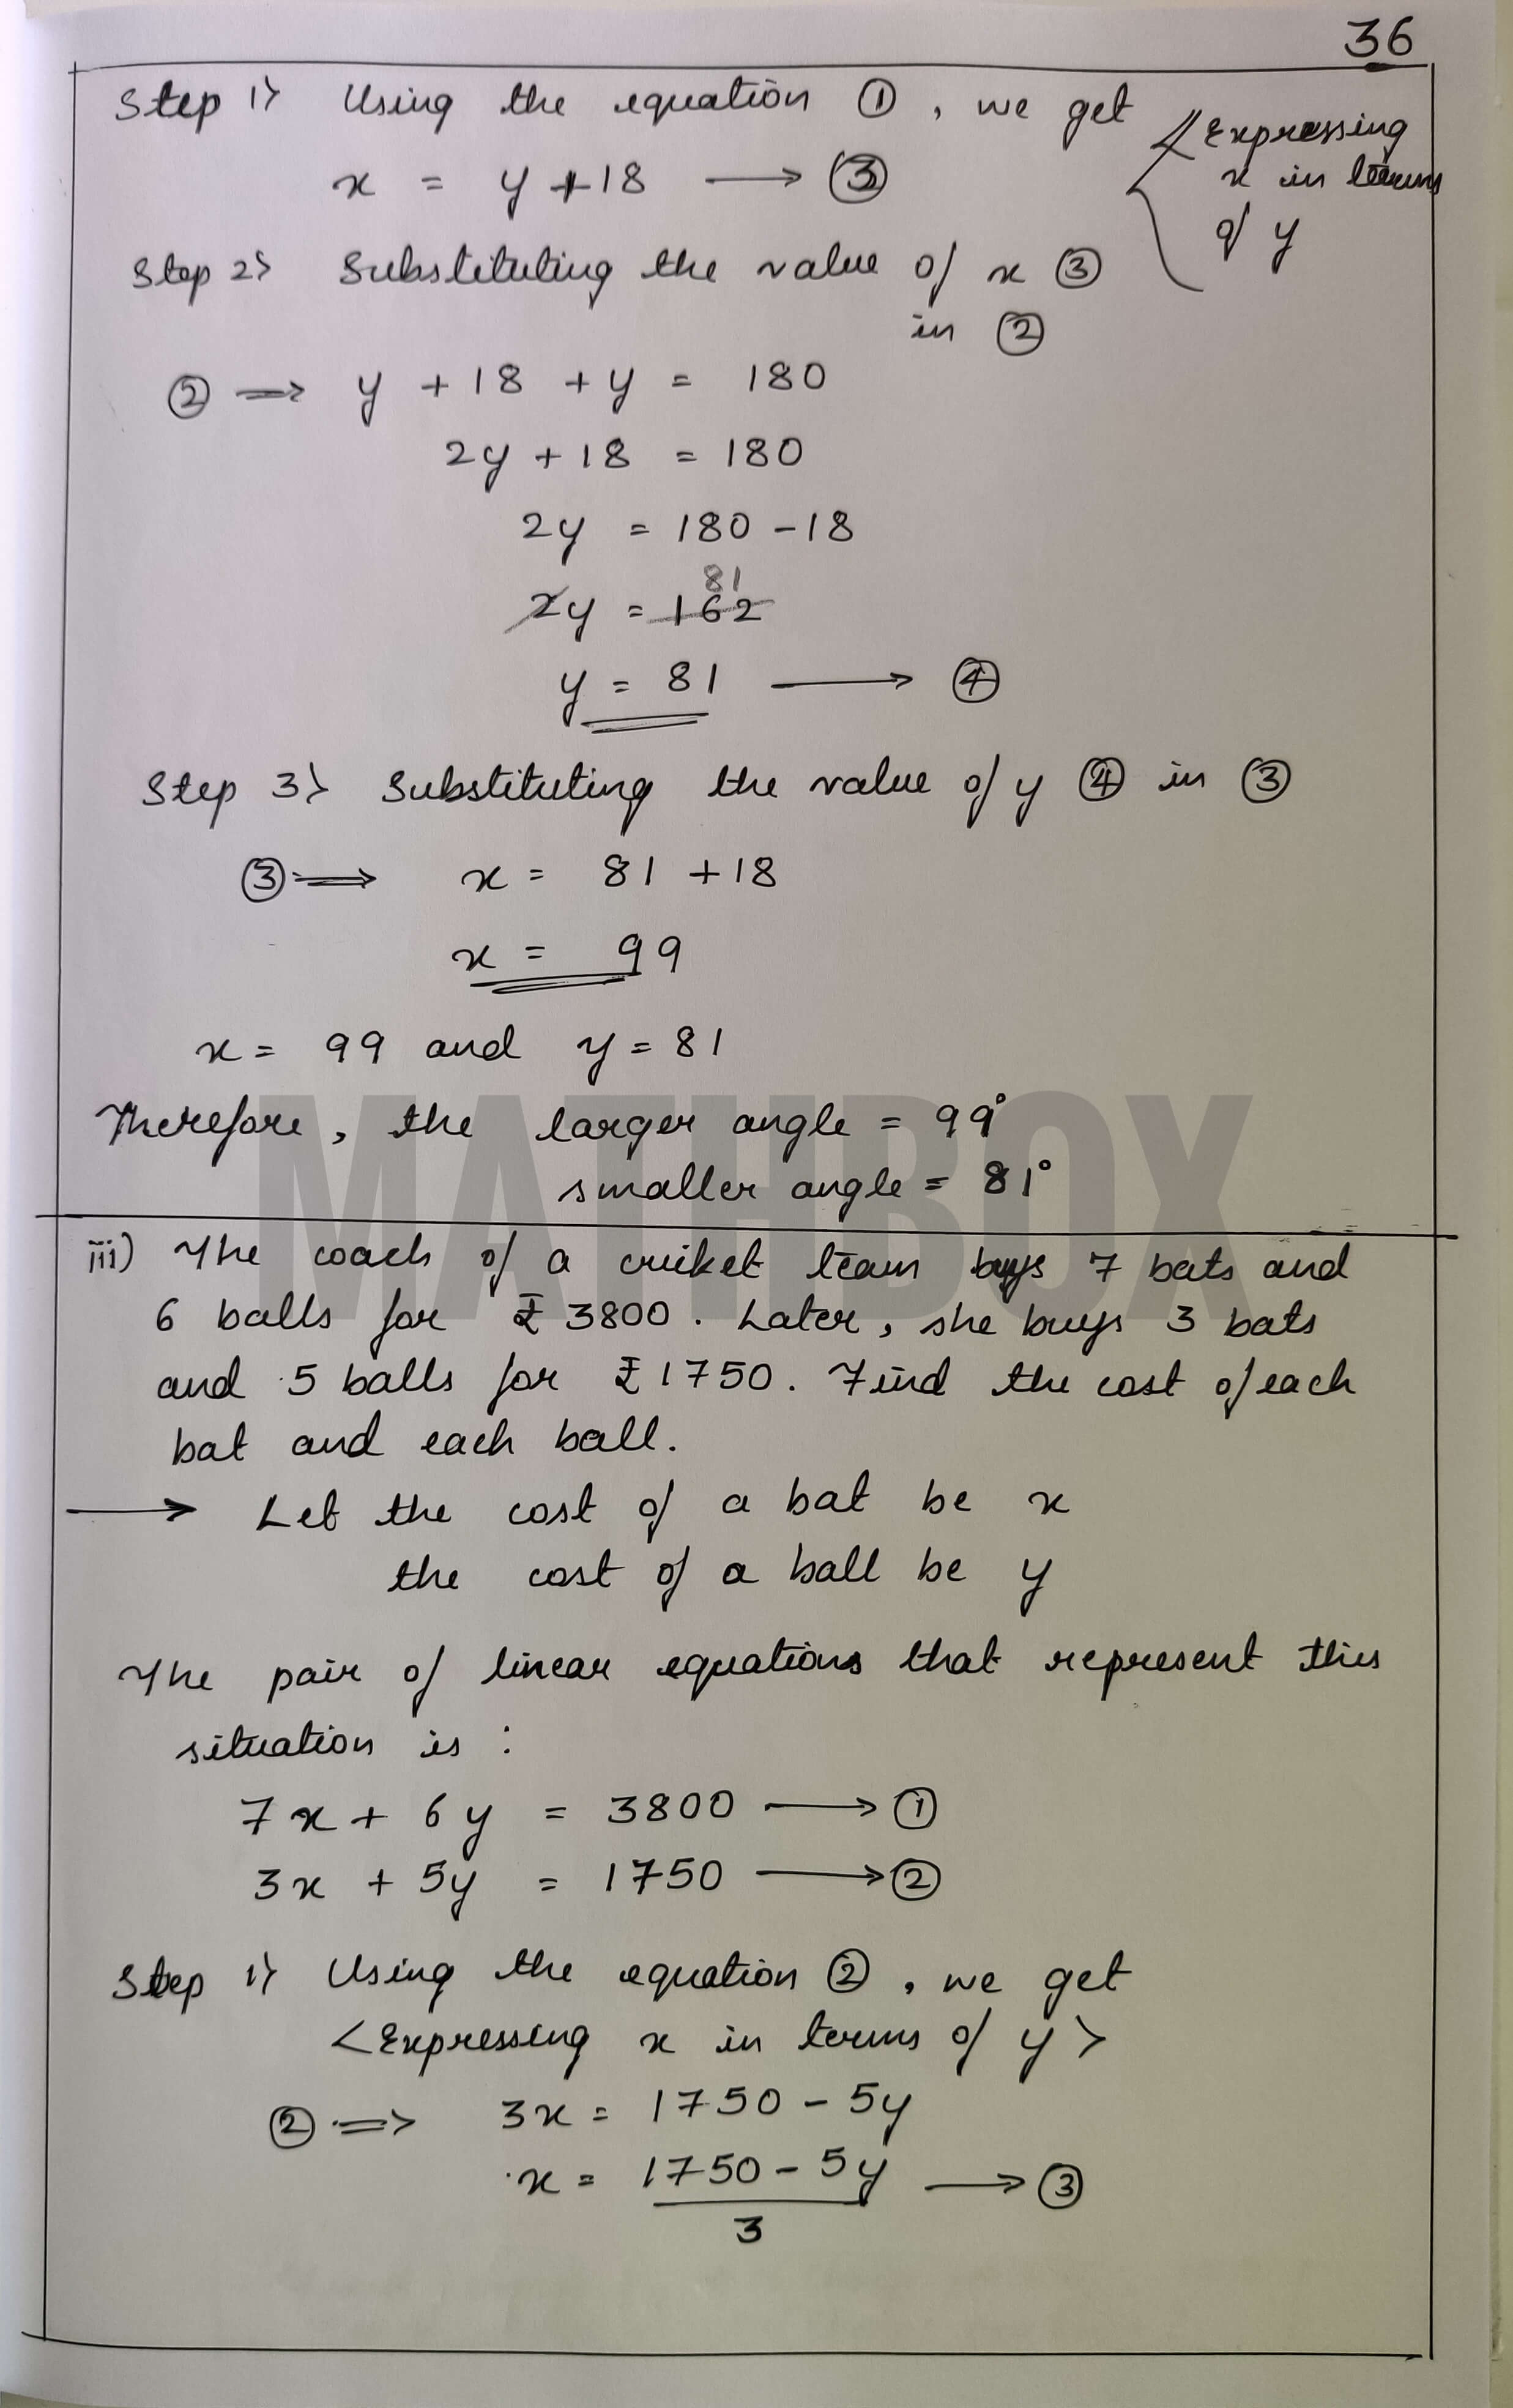 36
Step 1> Using the equation ①, we get
<Expressing
x in terms
of y
x = y + 18 ⟶ ③
Step 2> Substituting the value of x ③
in ②
② ⟹ y + 18 + y = 180
2y + 18 = 180
2y = 180 - 18
81
2y = 162
y = 81 ⟶ ④
Step 3> Substituting the value of y ④ in ③
③ ⟹ x = 81 + 18
x = 99
x = 99 and y = 81
Therefore, the larger angle = 99°
smaller angle = 81°
MATHBOX
iii) The coach of a cricket team buys 7 bats and
6 balls for ₹ 3800. Later, she buys 3 bats
and 5 balls for ₹ 1750. Find the cost of each
bat and each ball.
⟶ Let the cost of a bat be x
the cost of a ball be y
The pair of linear equations that represent this
situation is :
7x + 6y = 3800 ⟶ ①
3x + 5y = 1750 ⟶ ②
Step 1> Using the equation ②, we get
<Expressing x in terms of y>
② ⟹ 3x = 1750 - 5y
x = 1750 - 5y ⟶ ③
3